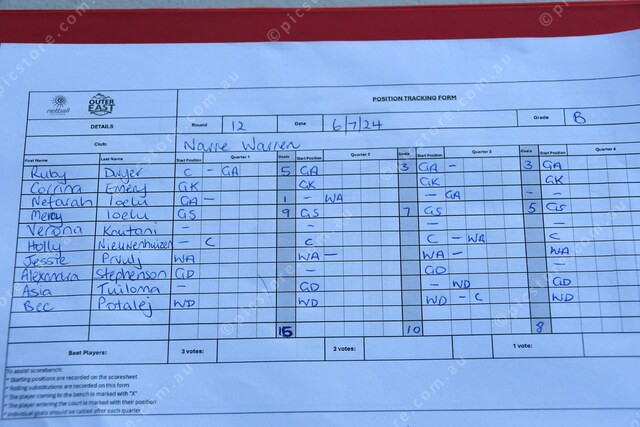 netball
OUTER EAST
POSITION TRACKING FORM
DETAILS Round 12 Date 6/7/24 Grade B
Club: Narre Warren
First Name Last Name Start Position Quarter 1 Goals Start Position Quarter 2 Goals Start Position Quarter 3 Goals Start Position Quarter 4
Ruby Dwyer C - GA 5 GA 3 GA - 3 GA
Corrina Emery GK GK GK GK
Nefarah Ioelu GA - 1 - WA - GA - -
Mercy Ioelu GS 9 GS 7 GS 5 GS
Verona Koutani - - - -
Holly Nieuwenhuizen - C C C - WA C
Jessie WA WA - WA - WA
Alexandra Stephenson GD - GD -
Asia Tuiloma - GD - WD GD
Bec Potalej WD WD WD - C WD
15 10 8
Best Players: 3 votes: 2 votes: 1 vote:
To assist scorebench:
* Starting positions are recorded on the scoresheet
* Rolling substitutions are recorded on this form
* The player coming to the bench is marked with "X"
* The player entering the court is marked with their position
* Individual goals should be tallied after each quarter
© picstore.com.au